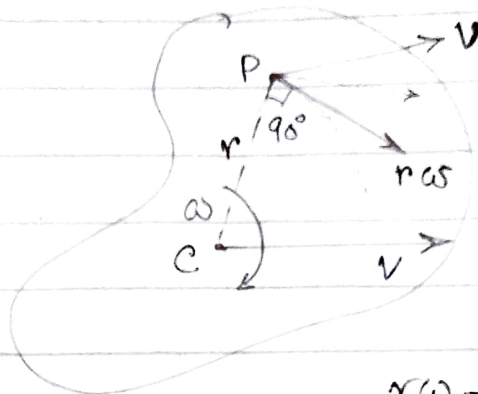 P
V
90°
r
rω
ω
C
V